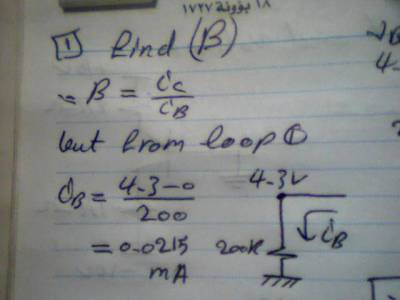 ١٨ بؤونة ١٧٢٧
1 Find (B)
∴ B = ic / iB
but from loop ①
iB = 4.3-0 / 200
4.3V
= 0.0215 mA
200K
iB
4.